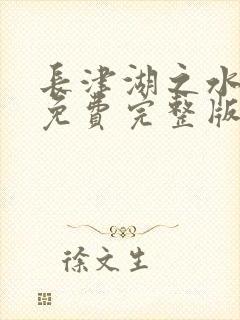 長津湖之水
免費完整版
徐文生